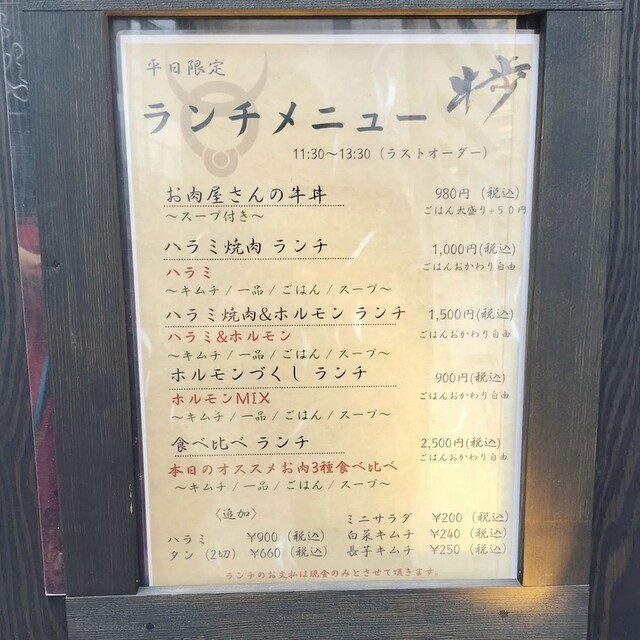 平日限定
ランチメニュー 牛歩
11:30〜13:30（ラストオーダー）
お肉屋さんの牛丼 980円（税込）
〜スープ付き〜 ごはん大盛り+50円
ハラミ焼肉 ランチ 1,000円(税込)
ハラミ ごはんおかわり自由
〜キムチ/一品/ごはん/スープ〜
ハラミ焼肉&ホルモン ランチ 1,500円(税込)
ハラミ&ホルモン ごはんおかわり自由
〜キムチ/一品/ごはん/スープ〜
ホルモンづくし ランチ 900円(税込)
ホルモンMIX ごはんおかわり自由
〜キムチ/一品/ごはん/スープ〜
食べ比べ ランチ 2,500円(税込)
本日のオススメお肉3種食べ比べ ごはんおかわり自由
〜キムチ/一品/ごはん/スープ〜
〈追加〉 ミニサラダ ¥200（税込）
ハラミ ¥900（税込） 白菜キムチ ¥240（税込）
タン（2切）¥660（税込） 長芋キムチ ¥250（税込）
ランチのお支払は現金のみとさせて頂きます。